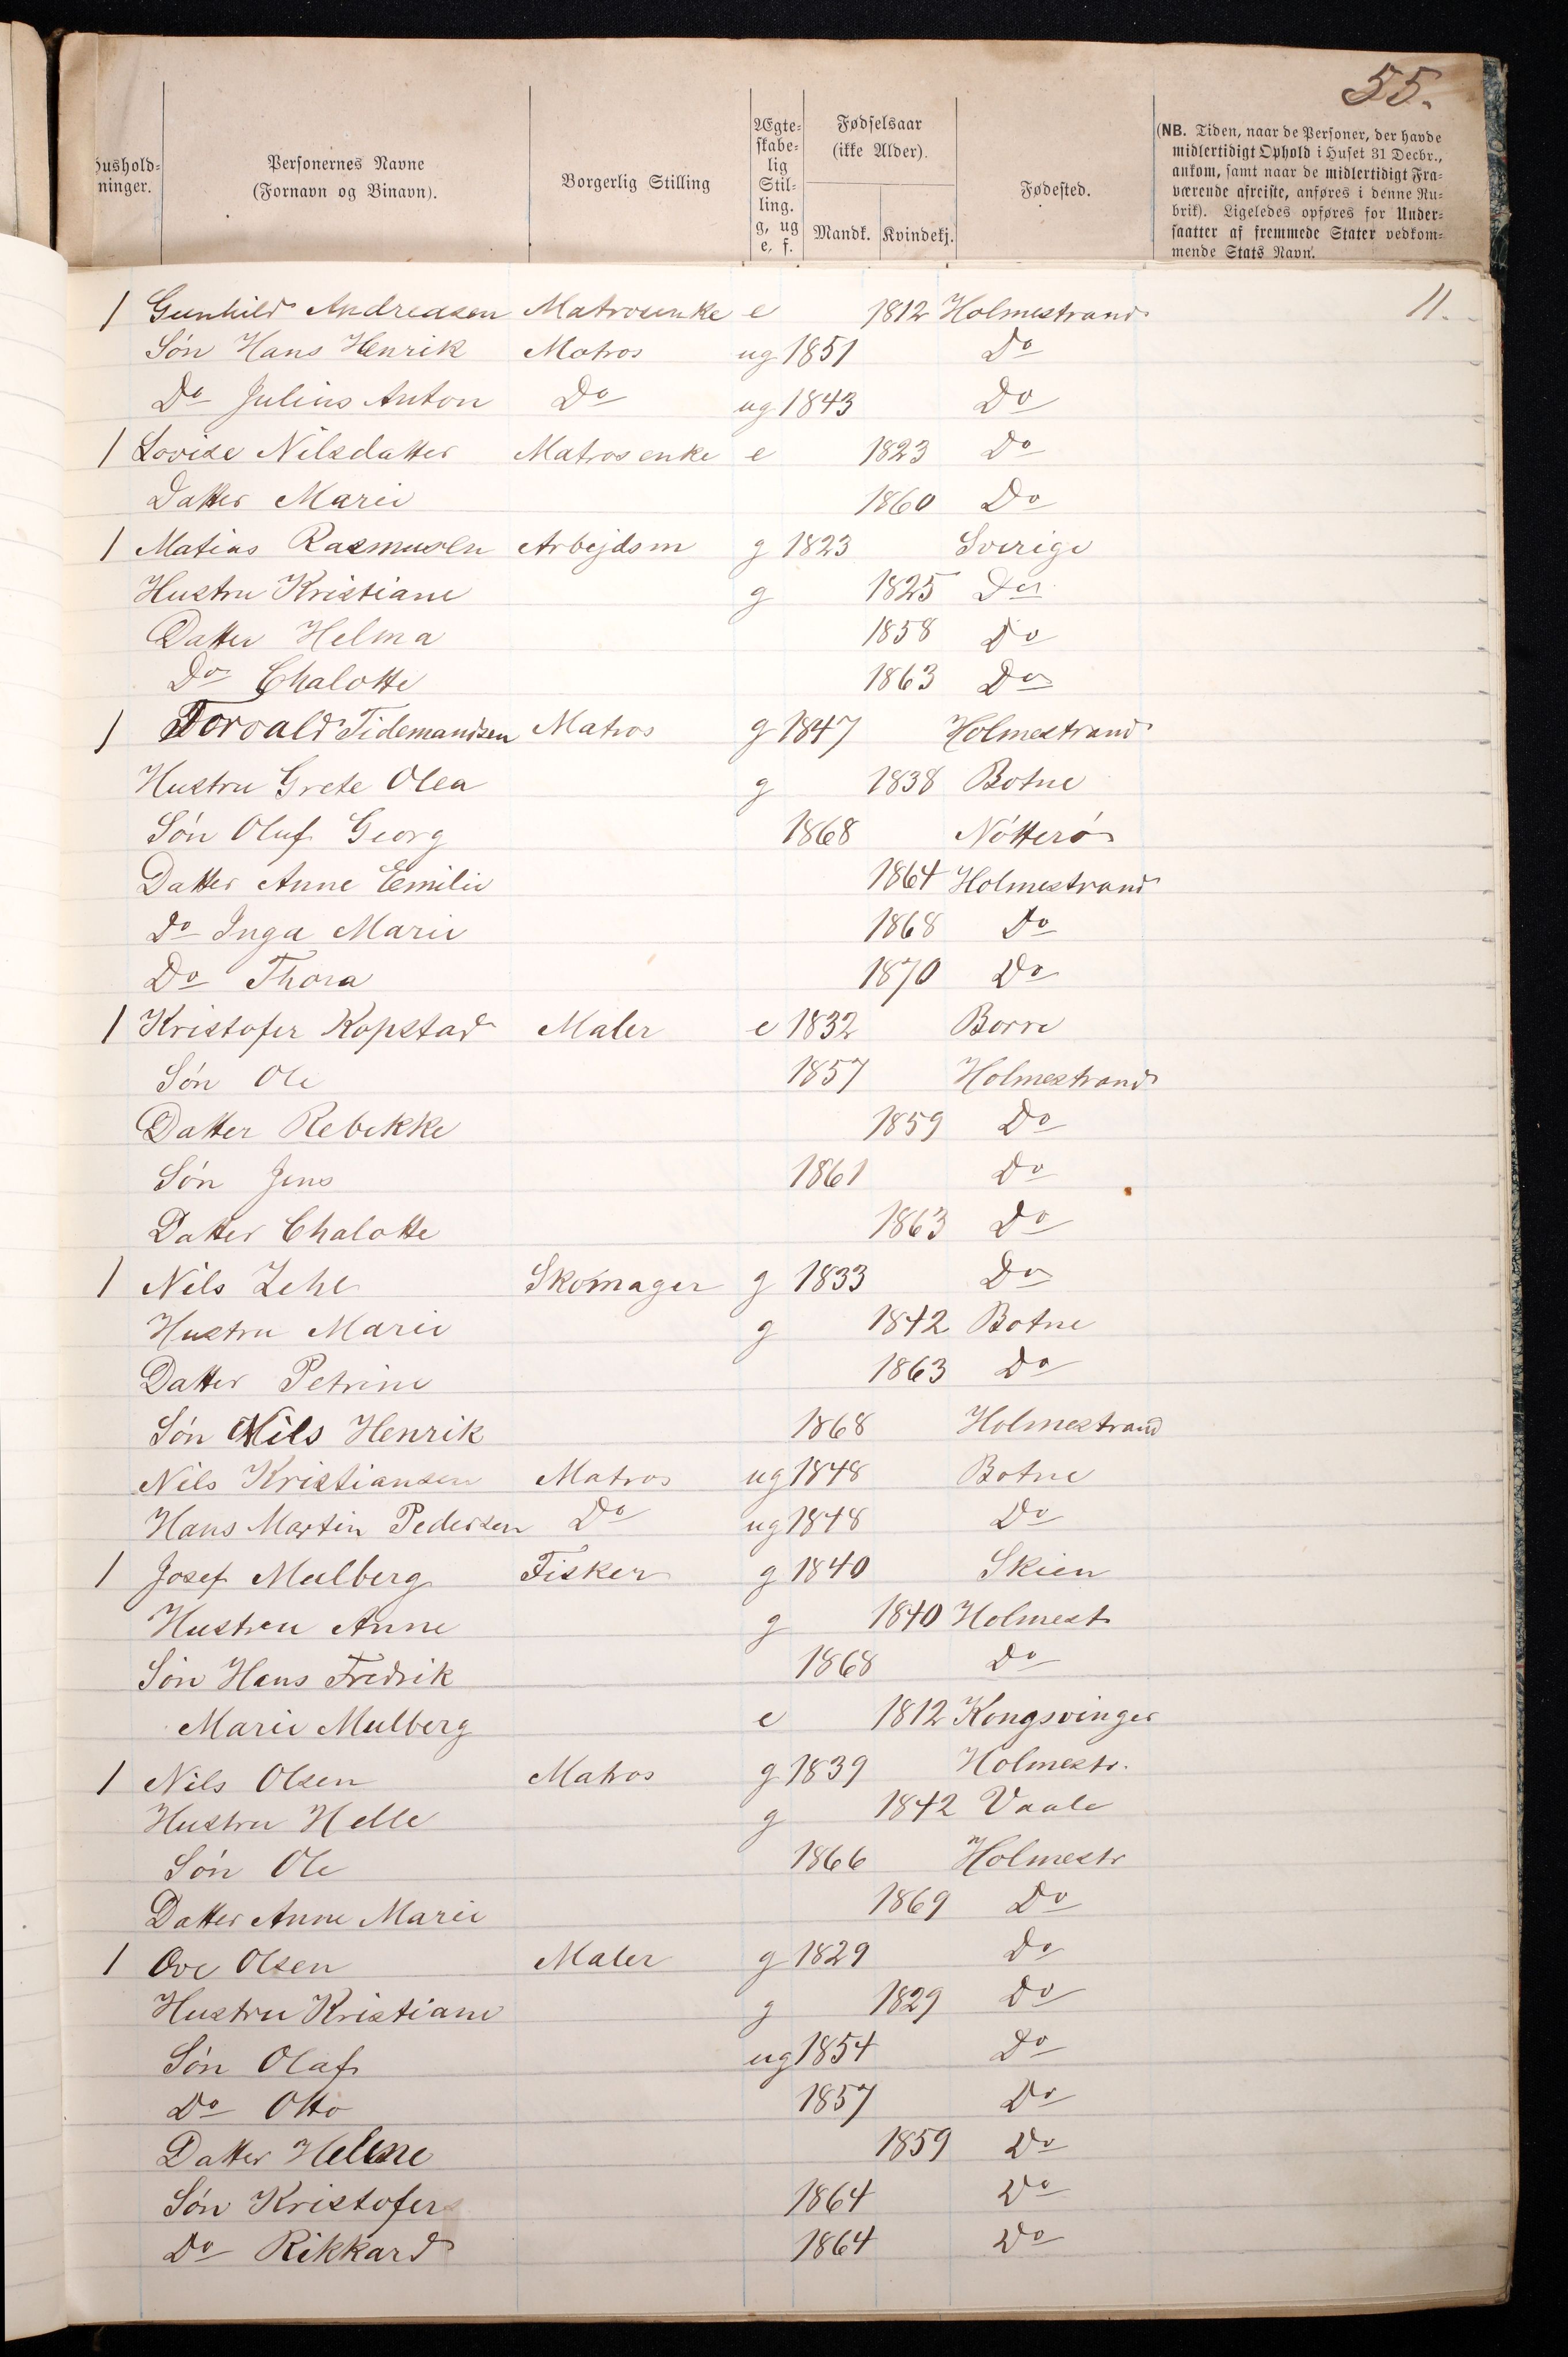 55.
hushold-
ninger.
Personernes Navne
(Fornavn og Binavn).
Borgerlig Stilling
Ægte-
skabe-
lig
Stil-
ling.
g, ug
e, f.
Fødselsaar
(ikke Alder).
Mandk. Kvindekj.
Fødested.
(NB. Tiden, naar de Personer, der havde
midlertidigt Ophold i Huset 31 Decbr.,
ankom, samt naar de midlertidigt Fra-
værende afreiste, anføres i denne Ru-
brik). Ligeledes opføres for Under-
saatter af fremmede Stater vedkom-
mende Stats Navn.
1 Gunhild Andreasen Matrosenke e 1812 Holmestrand 11.
Søn Hans Henrik Matros ug 1851 Do
Do Julius Anton Do ug 1843 Do
1 Lovise Nilsdatter Matrosenke e 1823 Do
Datter Marie 1860 Do
1 Matias Rasmusen Arbejdsm g 1823 Sverige
Hustru Kristiane g 1825 Do
Datter Helma 1858 Do
Do Chalotte 1863 Do
1 Torvald Tidemandsen Matros g 1847 Holmestrand
Hustru Grete Olea g 1838 Botne
Søn Oluf Georg 1868 Nøtterø
Datter Anne Emilie 1864 Holmestrand
Do Inga Marie 1868 Do
Do Thora 1870 Do
1 Kristofer Kopstad Maler e 1832 Borre
Søn Ole 1857 Holmestrand
Datter Rebekke 1859 Do
Søn Jens 1861 Do
Datter Chalotte 1863 Do
1 Nils Zehl Skomager g 1833 Do
Hustru Marie g 1842 Botne
Datter Petrine 1863 Do
Søn Nils Henrik 1868 Holmestrand
Nils Kristiansen Matros ug 1848 Botne
Hans Martin Pedersen Do ug 1848 Do
1 Josef Mulberg Fisker g 1840 Skien
Hustru Anne g 1840 Holmest
Søn Hans Fredrik 1868 Do
Marie Mulberg e 1812 Kongsvinger
1 Nils Olsen Matros g 1839 Holmestr.
Hustru Helle g 1842 Vaale
Søn Ole 1866 Holmestr
Datter Anne Marie 1869 Do
1 Ove Olsen Maler g 1829 Do
Hustru Kristiane g 1829 Do
Søn Olaf ug 1854 Do
Do Otto 1857 Do
Datter Helene 1859 Do
Søn Kristofer 1864 Do
Do Rikkard 1864 Do